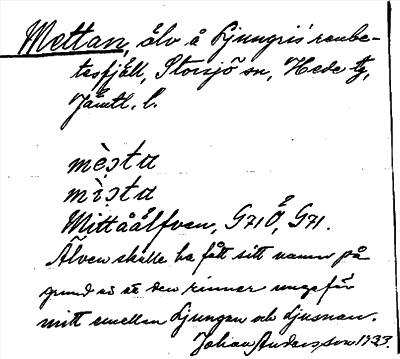 Mettan, älv å Ljungris' renbe-
tesfjäll, Storsjö sn, Hede tg,
Jämtl. l.
Mittåälfven, G71Ö, G71.
Älven skulle ha fått sitt namn på
grund av att den rinner ungefär
mitt emellan Ljungan och Ljusnan.
Johan Andersson 1933.